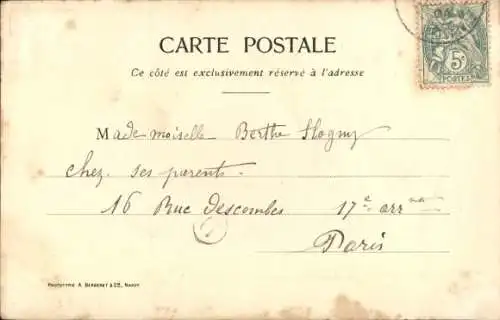 CARTE POSTALE
Ce côté est exclusivement réservé à l'adresse
5c
POSTES
Mademoiselle Berthe
chez ses parents.
16 Rue Descombes 17e arr
Paris
PHOTOTYPIE A. BERGERET & CIE, NANCY